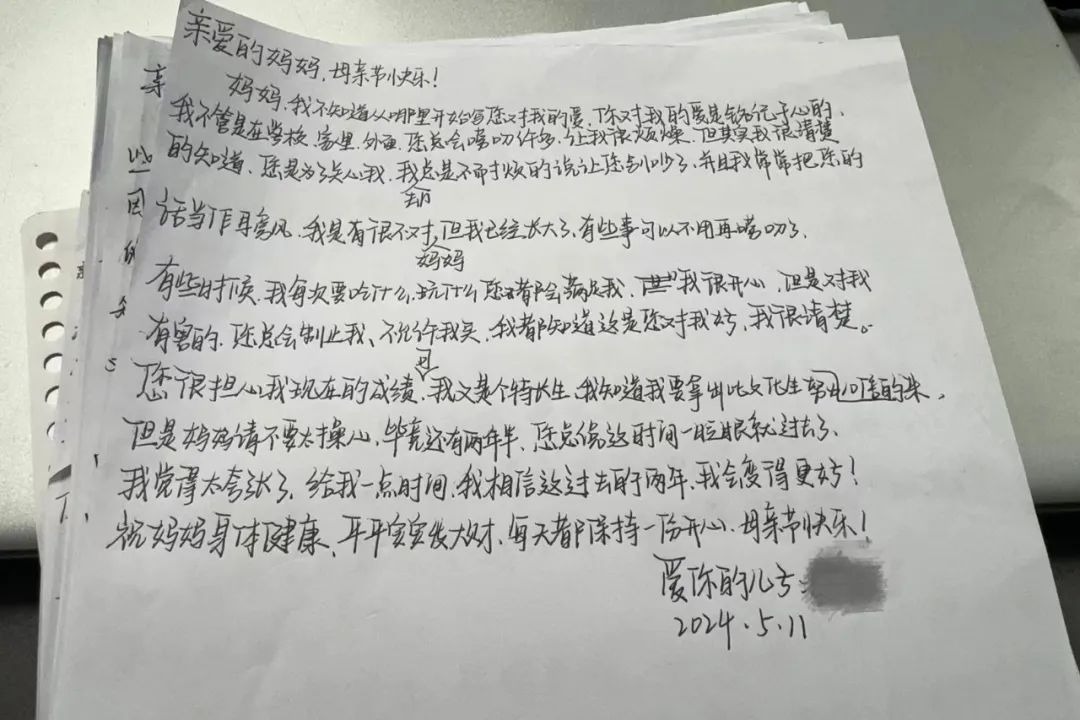 亲爱的妈妈，母亲节快乐！
妈妈，我不知道从哪里开始写您对我的爱，你对我的爱是铭记于心的，
我不管是在学校、家里、外面，您总会唠叨许多，让我很烦燥，但其实我很清楚
的知道，您是为了关心我，我总是不耐烦的说让您少叨少了，并且我常常把您的
话当作耳旁风，我是有很不对，但我已经长大了，有些事可以不用再唠叨了，
妈妈
有些时候，我每次要吃什么，玩什么您都会满足我，我很开心，但是对我
有害的，您总会制止我、不允许我买，我都知道这是您对我好，我很清楚。
您很担心我现在的成绩，我又是个特长生，我知道我要拿出比文化生 的来，
但是妈妈请不要太操心，毕竟还有两年半，您总说这时间一眨眼就过去了，
我觉得太夸张了，给我一点时间，我相信这过去的两年，我会变得更好！
祝妈妈身体健康，平平安安发大财，每天都保持一份开心，母亲节快乐！
爱你的儿子：
2024.5.11
亲
些
因